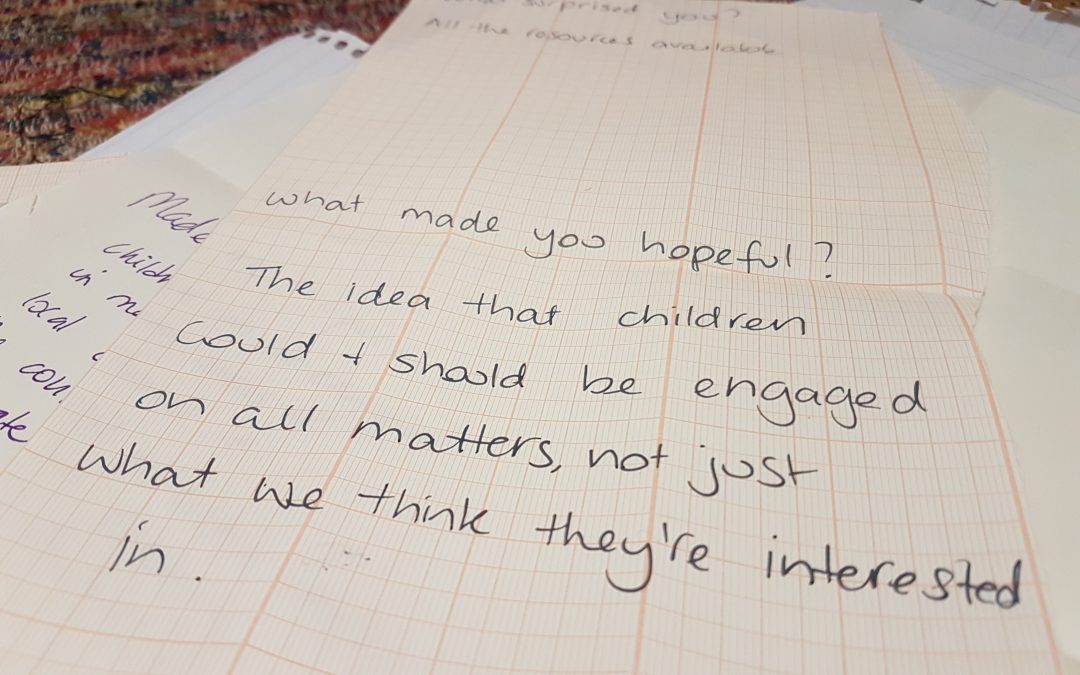 surprised you?
All the resources available
What made you hopeful?
The idea that children
could + should be engaged
on all matters, not just
what we think they're interested
in.
Made
local